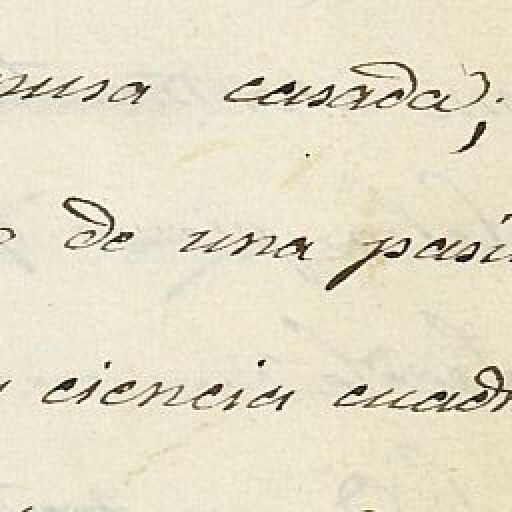 musa casada;
de una pasi
ciencia cuadr